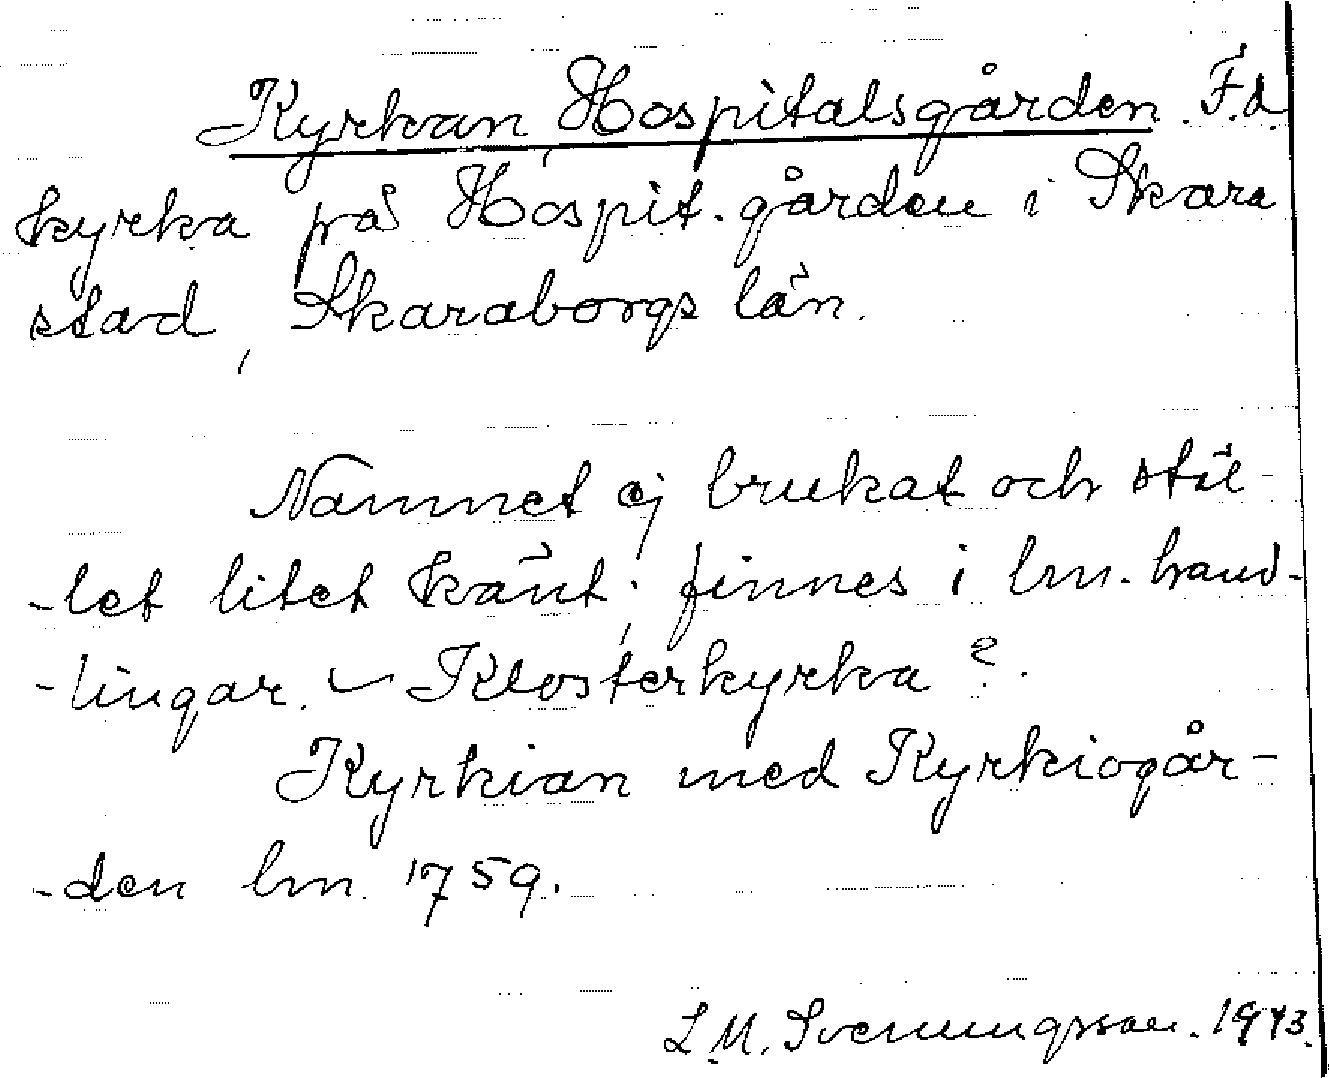 Kyrkan, Hospitalsgården. F.d.
kyrka på Hospit.gården i Skara
stad, Skaraborgs län.
Namnet ej brukat och stäl-
-let litet känt; finnes i lm. hand-
-lingar. – Klosterkyrka?.
Kyrkian med Kyrkiogår-
-den lm. 1759.
L.M. Svenungsson. 1943.